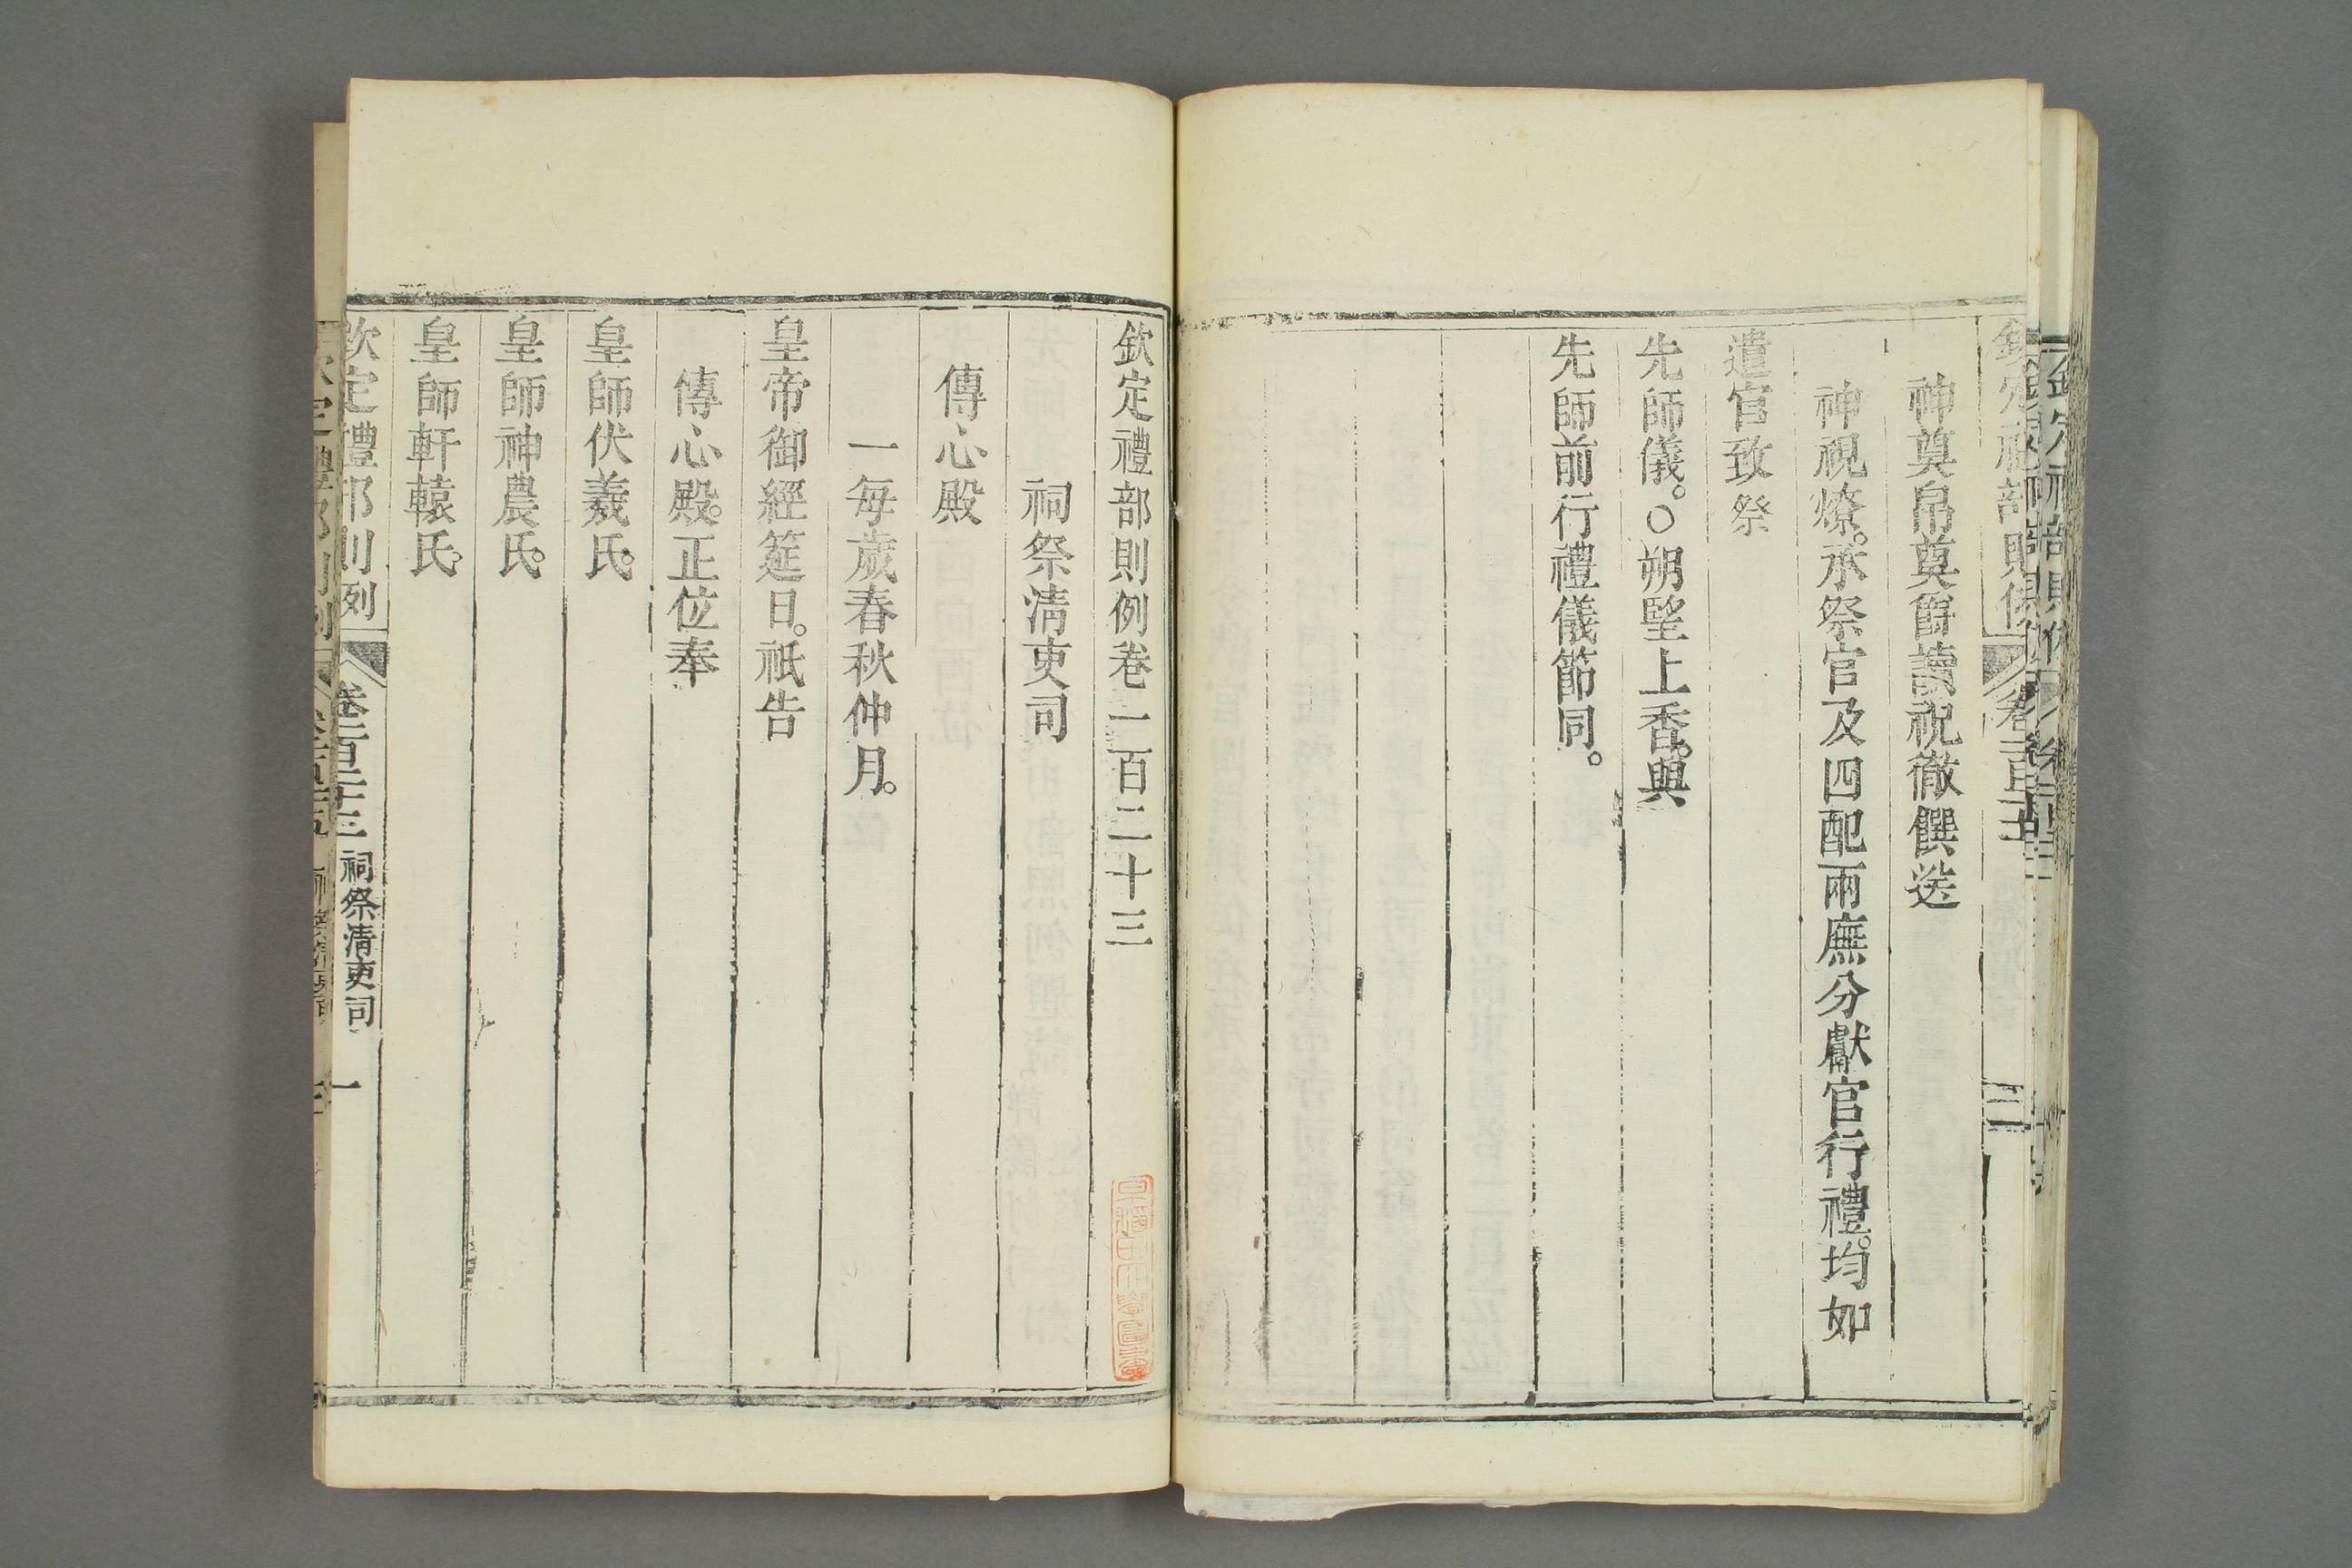 神奠帛奠爵讀祝徹饌送
神視燎。承祭官及四配兩廡分獻官行禮。均如
遣官致祭
先師儀。○朔望上香。與
先師前行禮儀節同。
欽定禮部則例卷一百二十三
祠祭淸吏司
傳心殿
一每歲春秋仲月。
皇帝御經筵日。祇告
傳心殿。正位奉
皇師伏羲氏。
皇師神農氏。
皇師軒轅氏。
欽定禮部則例 卷一百二十三 祠祭淸吏司 一